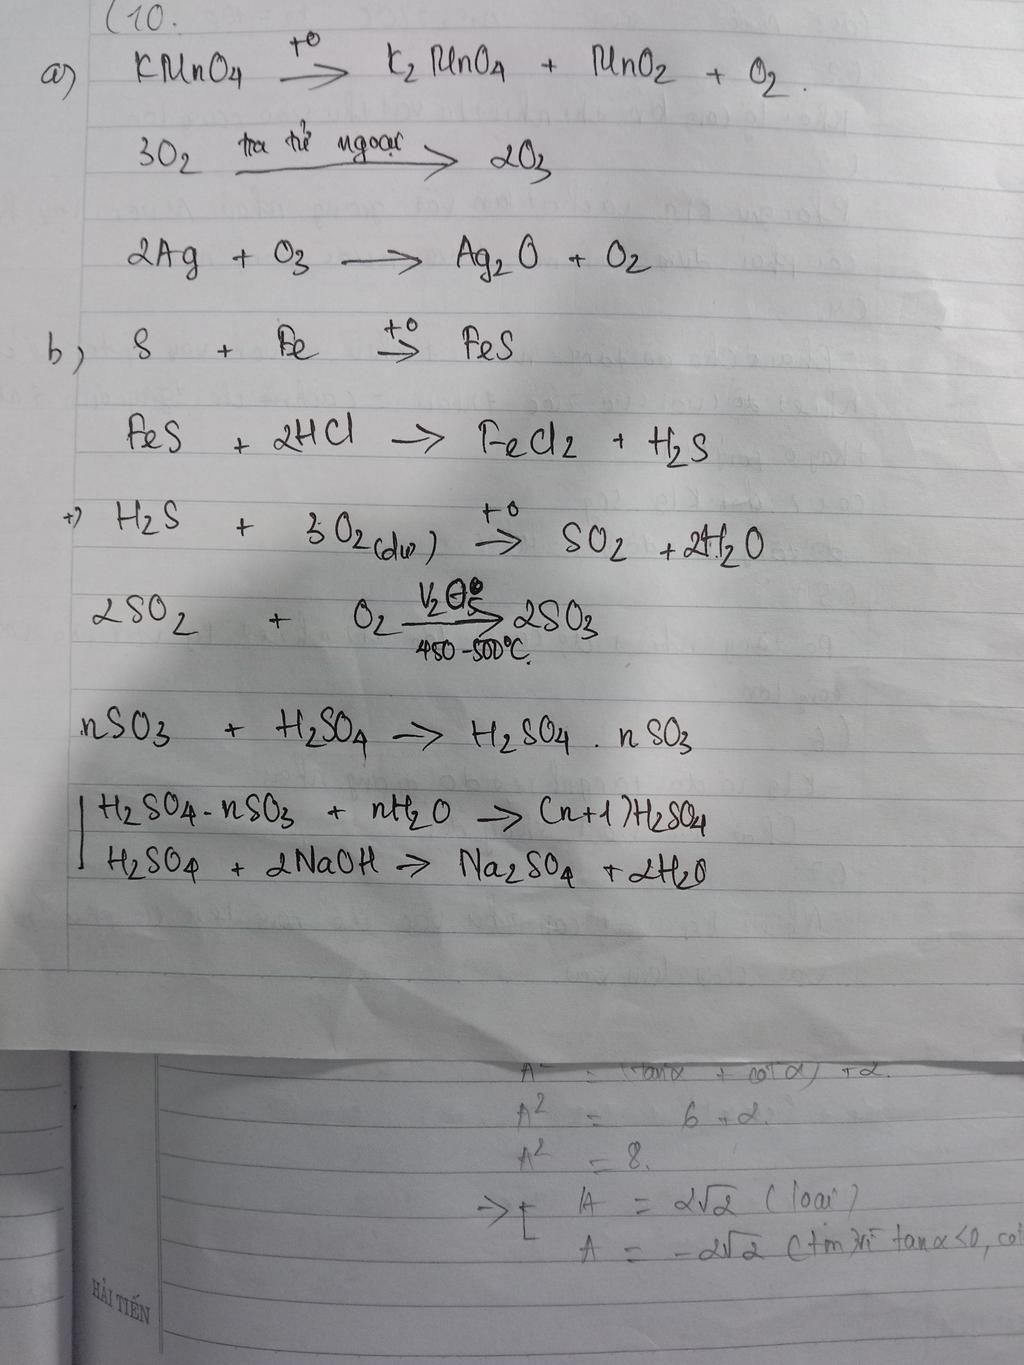 C10.
a) KMnO4 t° → K2MnO4 + MnO2 + O2.
3O2 tia tử ngoại → 2O3
2Ag + O3 → Ag2O + O2
b) S + Fe t° → FeS
FeS + 2HCl → FeCl2 + H2S
+) H2S + 3O2(dư) t° → SO2 + 2H2O
2SO2 + O2 V2O5 → 450-500°C. 2SO3
nSO3 + H2SO4 → H2SO4 . nSO3
H2SO4.nSO3 + nH2O → (n+1)H2SO4
H2SO4 + 2NaOH → Na2SO4 + 2H2O
A² = (tanα + cotα) + 2.
A² = 6 + 2.
A² = 8.
→ [ A = 2√2 (loại)
A = -2√2 (tm) vì tanα<0, cot
HẢI TIẾN